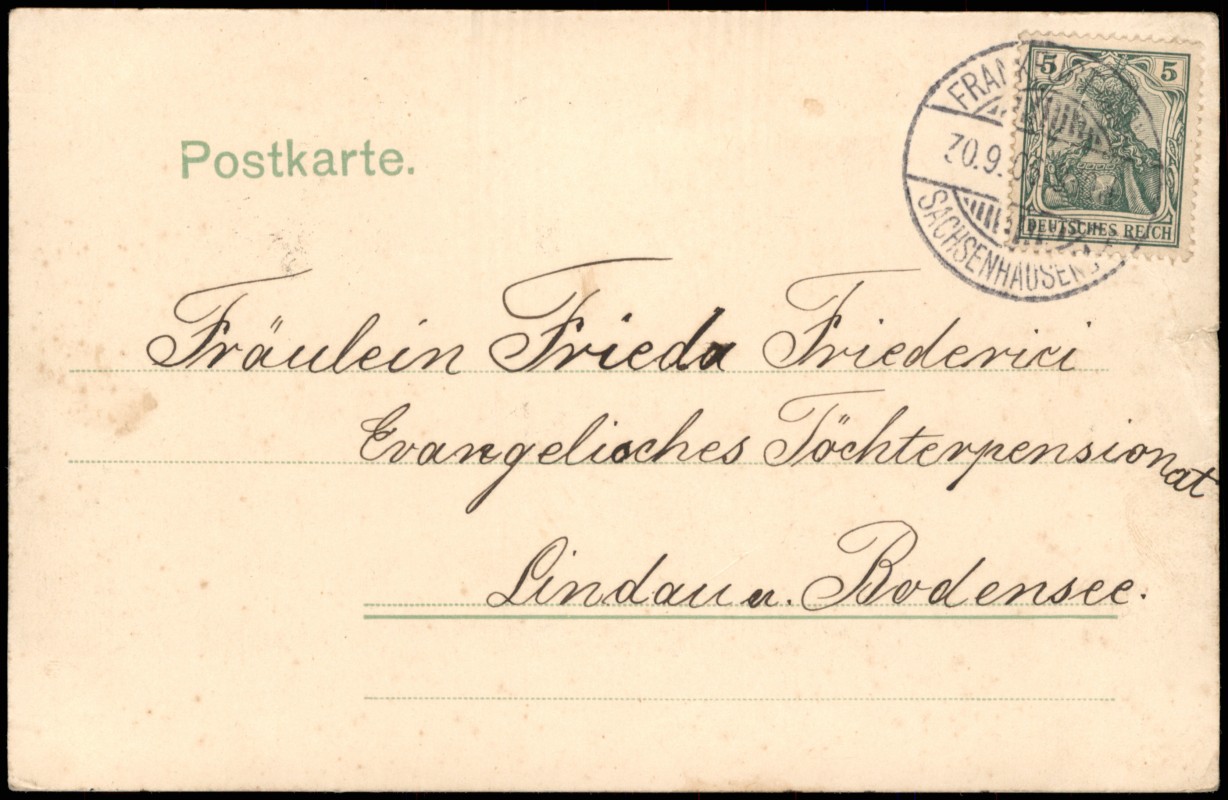 Postkarte.
5 5
DEUTSCHES REICH
30.9.
SACHSENHAUSEN
Fräulein Frieda Friederici
Evangelisches Töchterpensionat
Lindau a. Bodensee.